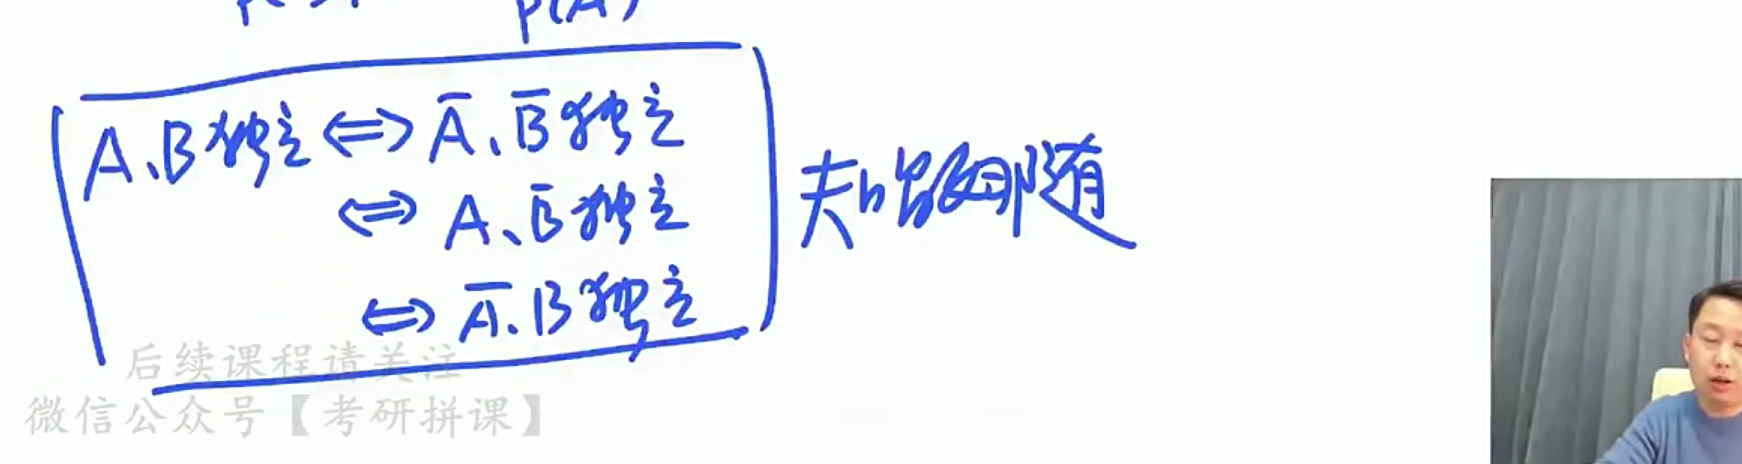 P(A)
A、B独立 ⇔ A̅、B̅独立
⇔ A、B̅独立
⇔ A̅、B独立
后续课程请关注
微信公众号【考研拼课】